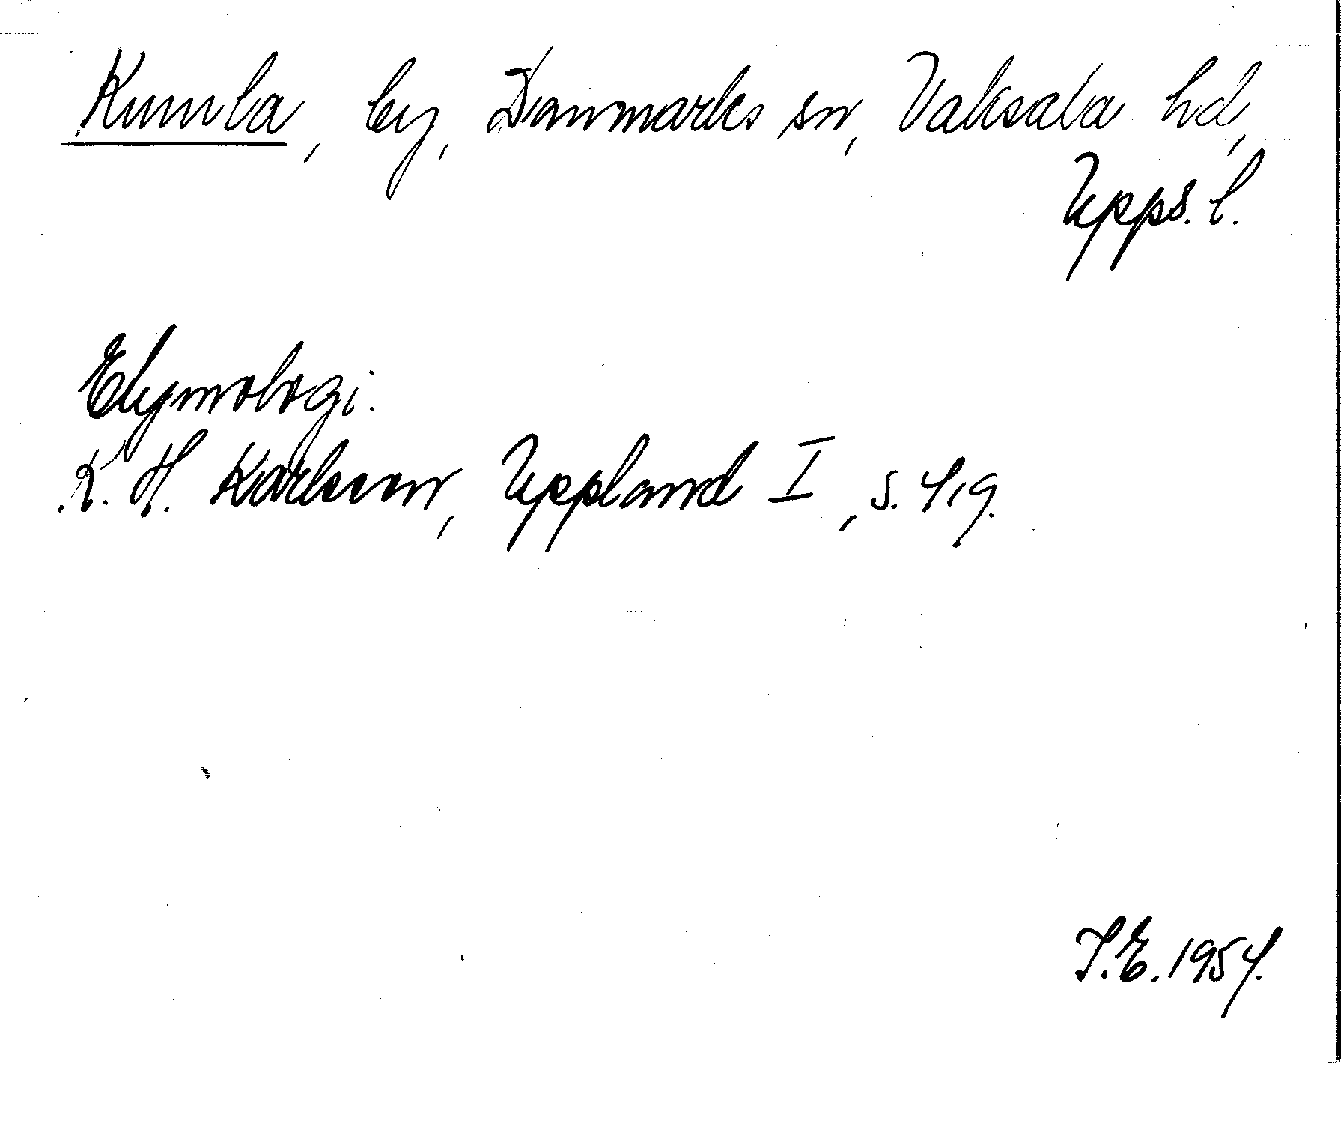 Kumla, by, Danmarks sn, Vaksala hd,
Upps. l.
Etymologi.
K. H. Karlsson, Uppland I, s. 419.
T.E. 1954.